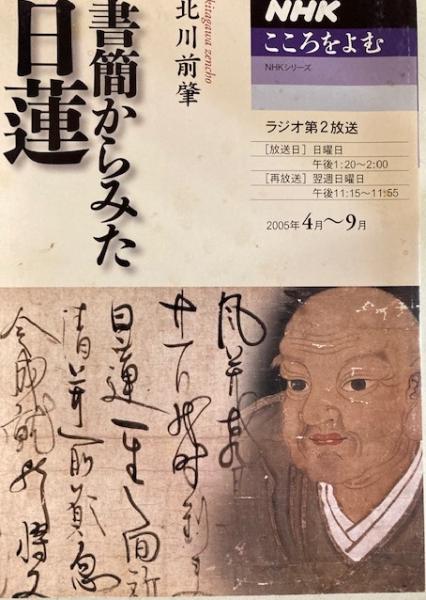 書簡からみた
日蓮
北川前肇
kitagawa zencho
NHK
こころをよむ
NHKシリーズ
ラジオ第2放送
[放送日] 日曜日
午後1:20〜2:00
[再放送] 翌週日曜日
午後11:15〜11:55
2005年4月〜9月
日蓮一生之間